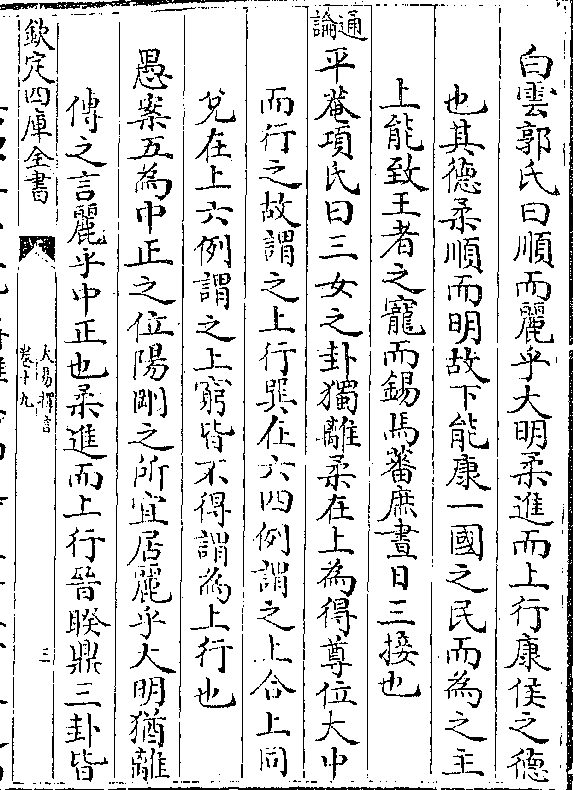 白雲郭氏曰順而麗乎大明柔進而上行康侯之德
也其德柔順而明故下能康一國之民而為之主
上能致王者之寵而錫馬蕃庶晝日三接也
通論
平菴項氏曰三女之卦獨離柔在上為得尊位大中
而行之故謂之上行巽在六四例謂之上合上同
兌在上六例謂之上窮皆不得謂為上行也
愚案五為中正之位陽剛之所宜居麗乎大明猶離
傳之言麗乎中正也柔進而上行晉睽鼎三卦皆
欽定四庫全書
大易擇言
卷十九
三